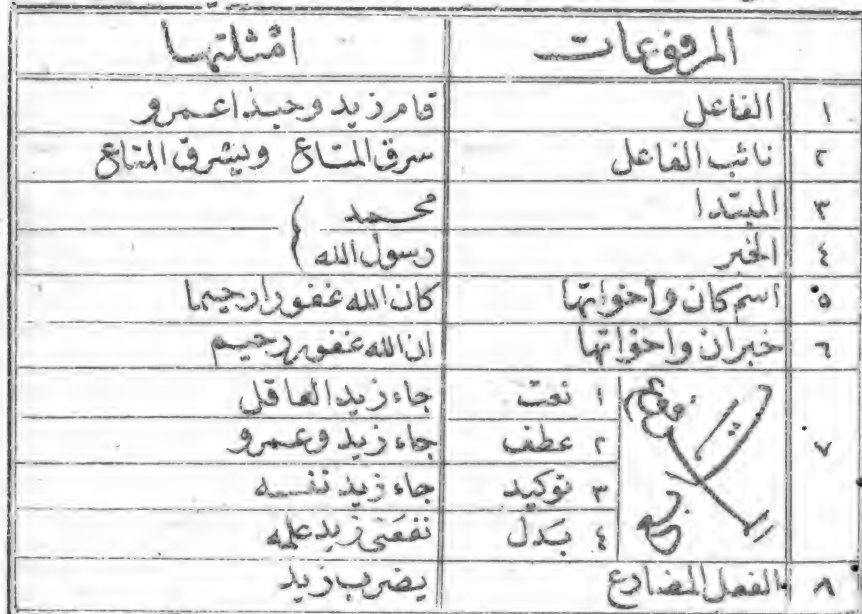 المرفوعات امثلتها
١ الفاعل قام زيد وحبذا عمرو
٢ نائب الفاعل سرق المتاع ويسرق المتاع
٣ المبتدا محمد
٤ الخبر رسول الله
٥ اسم كان وأخواتها كان الله غفورا رحيما
٦ خبران واخواتها ان الله غفور رحيم
٧
١ نعت جاء زيد العاقل
٢ عطف جاء زيد وعمرو
٣ توكيد جاء زيد نفسه
٤ بدل نفعنى زيد علمه
٨ الفعل المضارع يضرب زيد